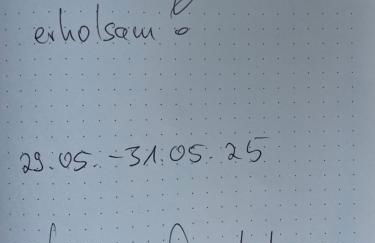 erholsam!
29.05. - 31.05. 25